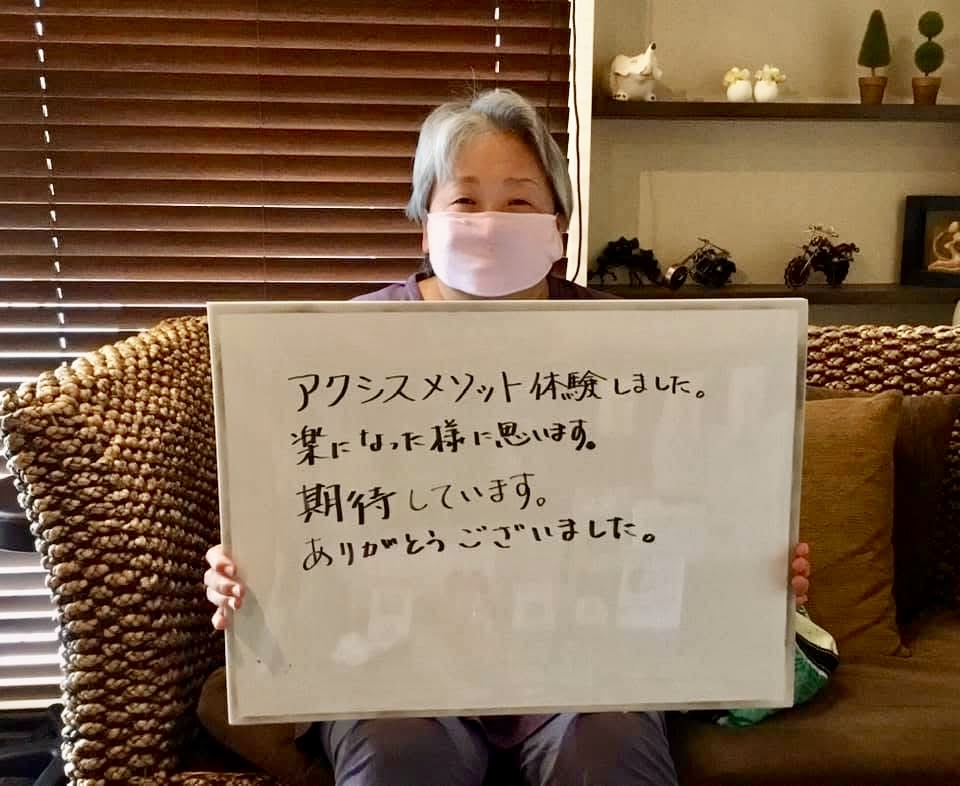 アクシスメソット体験しました。
楽になった様に思います。
期待しています。
ありがとうございました。